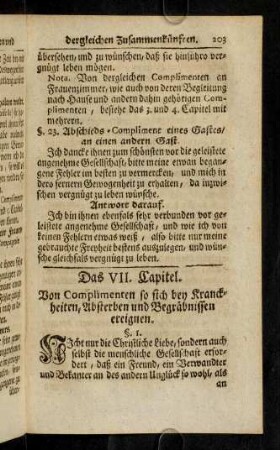 dergleichen Zusammenkünften. 203
übersehen, und zu wünschen, daß sie hinführo ver-
gnügt leben mögen.
Nota. Von dergleichen Complimenten an
Frauenzimmer, wie auch von deren Begleitung
nach Hause und andern dahin gehörigen Com-
plimenten, besiehe das 3. und 4. Capitel mit
mehrern.
§. 23. Abschieds-Compliment eines Gastes/
an einen andern Gast.
Ich dancke ihnen zum schönsten vor die geleistete
angenehme Gesellschaft, bitte meine etwan began-
gene Fehler im besten zu vermercken, und mich in
dero fernern Gewogenheit zu erhalten, da inzwi-
schen vergnügt zu leben wünsche.
Antwort darauf.
Ich bin ihnen ebenfals sehr verbunden vor ge-
leistete angenehme Gesellschaft, und wie ich von
keinen Fehlern etwas weiß, also bitte nur meine
gebrauchte Freyheit bestens auszulegen, und wün-
sche gleichfals vergnügt zu leben.
Das VII. Capitel.
Von Complimenten so sich bey Kranck-
heiten, Absterben und Begräbnissen
ereignen.
§. 1.
Nicht nur die Christliche Liebe, sondern auch
selbst die menschliche Gesellschaft erfor-
dert, daß ein Freund, ein Verwandter
und Bekanter an des andern Unglück so wohl, als
an